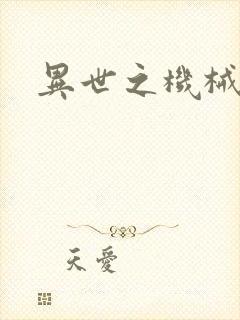 異世之機械
天愛